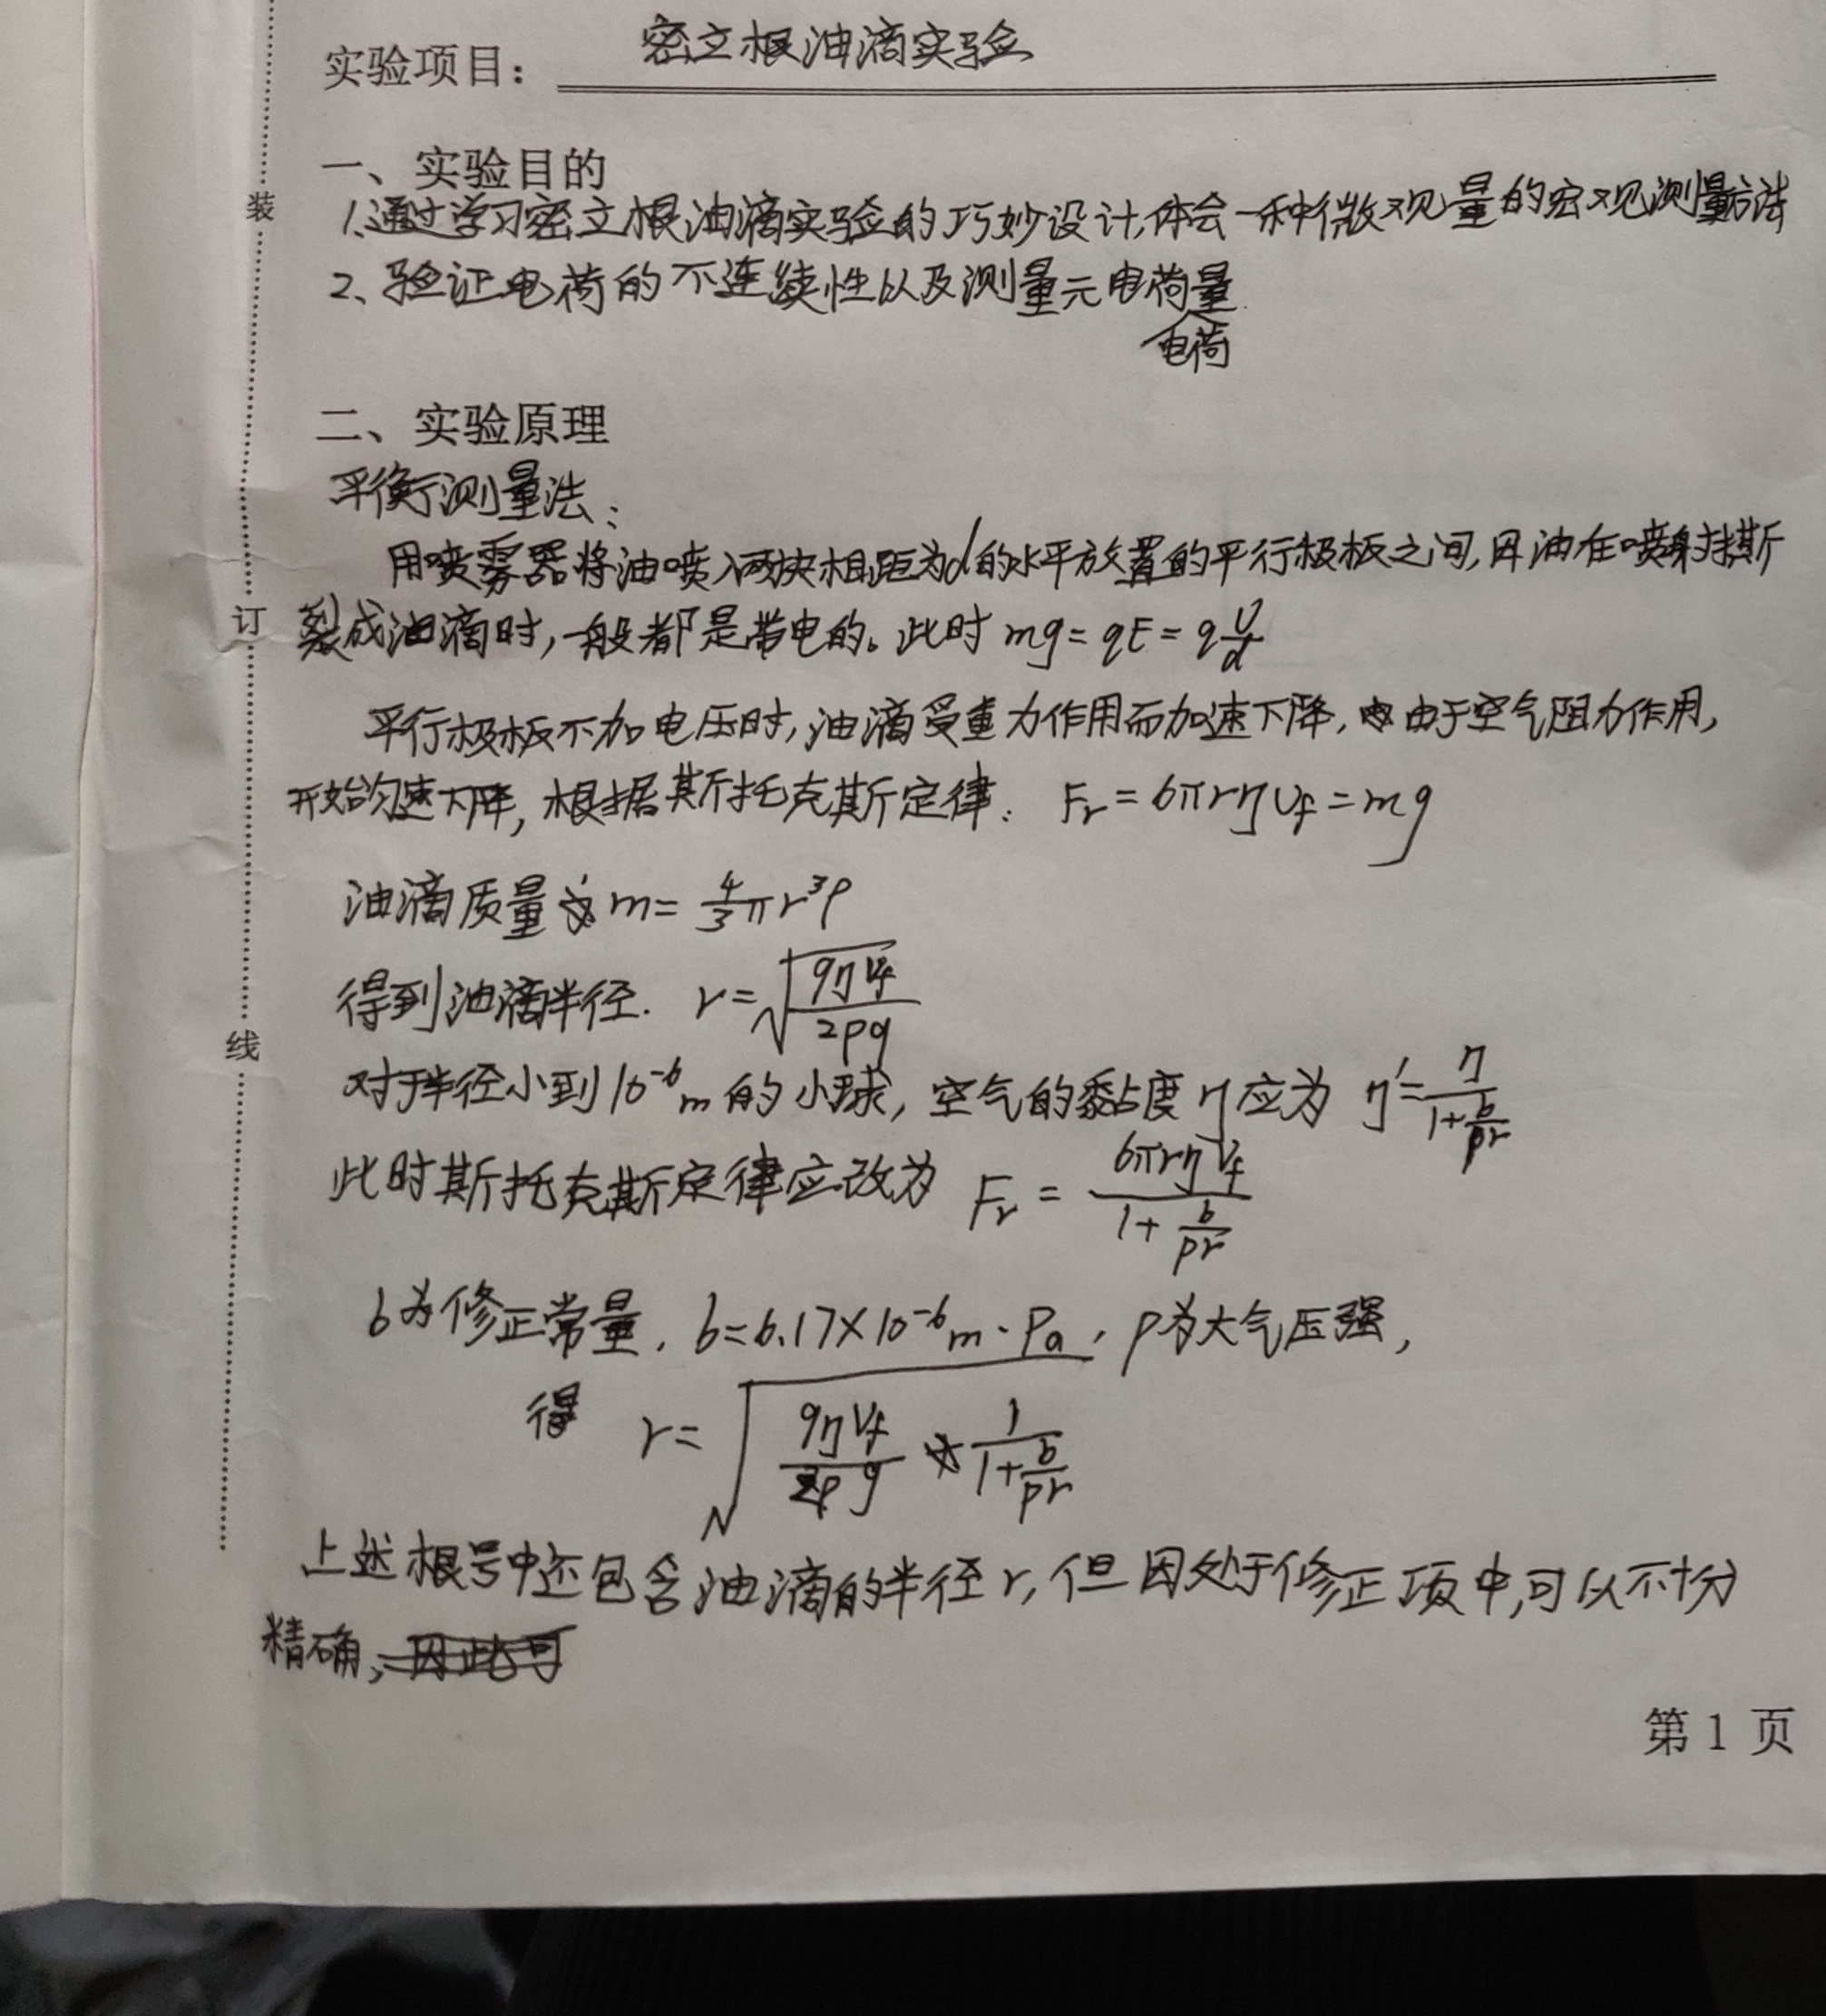 实验项目： 密立根油滴实验
一、实验目的
1.通过学习密立根油滴实验的巧妙设计,体会一种微观量的宏观测量方法
2、验证电荷的不连续性以及测量元电荷量
电荷
二、实验原理
平衡测量法：
用喷雾器将油喷入两块相距为d的水平放置的平行极板之间,因油在喷射撕
裂成油滴时,一般都是带电的。此时 mg = qE = q U/d
平行极板不加电压时,油滴受重力作用而加速下降,由于空气阻力作用,
开始匀速下降,根据斯托克斯定律： Fr = 6πrηVf = mg
油滴质量为 m = 4/3 πr³ρ
得到油滴半径. r = √(9ηVf / 2ρg)
对于半径小到10⁻⁶m的小球, 空气的黏度η应为 η′= η / (1+ b/pr)
此时斯托克斯定律应改为 Fr = 6πrηVf / (1+ b/pr)
b为修正常量, b=6.17×10⁻⁶m·Pa, p为大气压强,
得 r = √(9ηVf / 2ρg · 1 / (1+ b/pr))
上述根号中还包含油滴的半径r,但因处于修正项中,可以不十分
精确,因此可
第 1 页
装
订
线